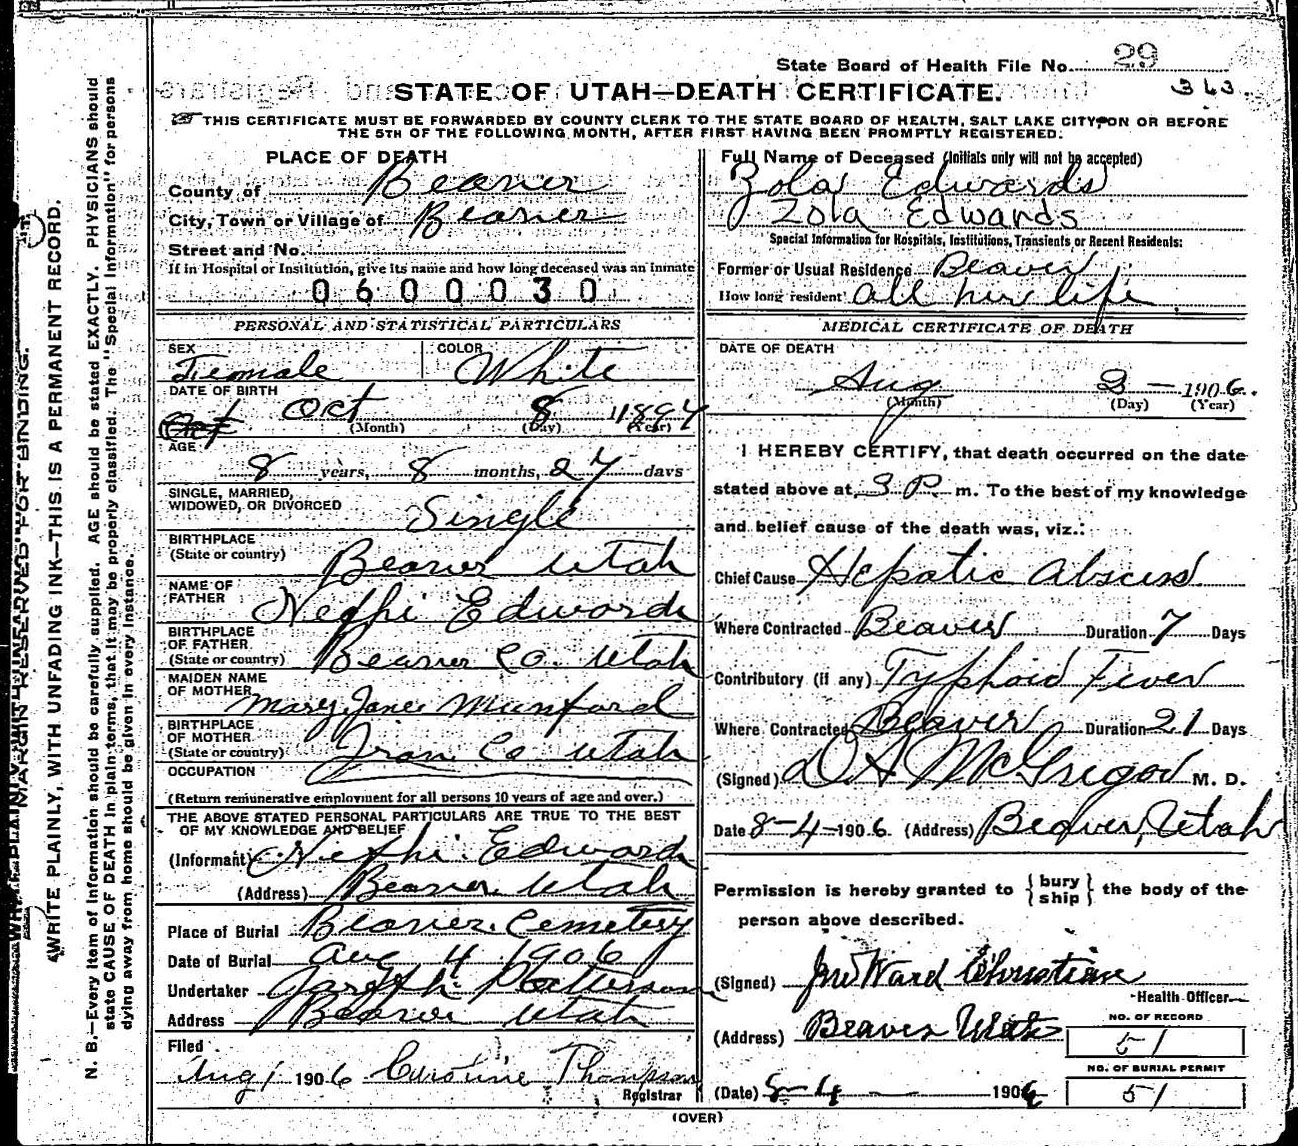 State Board of Health File No. 29
363
STATE OF UTAH—DEATH CERTIFICATE.
THIS CERTIFICATE MUST BE FORWARDED BY COUNTY CLERK TO THE STATE BOARD OF HEALTH, SALT LAKE CITY, ON OR BEFORE
THE 5TH OF THE FOLLOWING MONTH, AFTER FIRST HAVING BEEN PROMPTLY REGISTERED.
PLACE OF DEATH
County of Beaver
City, Town or Village of Beaver
Street and No.
If in Hospital or Institution, give its name and how long deceased was an inmate
0600030
PERSONAL AND STATISTICAL PARTICULARS
SEX Female COLOR White
DATE OF BIRTH
Oct Oct 8 1897
(Month) (Day) (Year)
AGE
8 years, 8 months, 27 days
SINGLE, MARRIED,
WIDOWED, OR DIVORCED Single
BIRTHPLACE
(State or country) Beaver Utah
NAME OF
FATHER Nephi Edwards
BIRTHPLACE
OF FATHER
(State or country) Beaver Co. Utah
MAIDEN NAME
OF MOTHER Mary Jane Munford
BIRTHPLACE
OF MOTHER
(State or country) Iron Co Utah
OCCUPATION
(Return remunerative employment for all persons 10 years of age and over.)
THE ABOVE STATED PERSONAL PARTICULARS ARE TRUE TO THE BEST
OF MY KNOWLEDGE AND BELIEF
(Informant) Nephi Edwards
(Address) Beaver Utah
Place of Burial Beaver Cemetery
Date of Burial Aug 4 1906
Undertaker Joseph Patterson
Address Beaver Utah
Filed
Aug 1906 Caroline Thompson
Registrar
Full Name of Deceased (Initials only will not be accepted)
Zola Edwards
Zola Edwards
Special Information for Hospitals, Institutions, Transients or Recent Residents:
Former or Usual Residence Beaver
How long resident all her life
MEDICAL CERTIFICATE OF DEATH
DATE OF DEATH
Aug 3 — 1906.
(Month) (Day) (Year)
I HEREBY CERTIFY, that death occurred on the date
stated above at 3 P m. To the best of my knowledge
and belief cause of the death was, viz.:
Chief Cause Hepatic Abscess
Where Contracted Beaver Duration 7 Days
Contributory (if any) Typhoid Fever
Where Contracted Beaver Duration 21 Days
(Signed) McGregor M. D.
Date 8-4-1906. (Address) Beaver, Utah
Permission is hereby granted to {bury ship} the body of the
person above described.
(Signed) Jno Ward Christian
Health Officer
(Address) Beaver Utah
NO. OF RECORD
51
NO. OF BURIAL PERMIT
51
(Date) 8-4 — 1906
(OVER)
MARGIN RESERVED FOR BINDING.
WRITE PLAINLY, WITH UNFADING INK—THIS IS A PERMANENT RECORD.
N. B.—Every item of information should be carefully supplied. AGE should be stated EXACTLY. PHYSICIANS should
state CAUSE OF DEATH in plain terms, that it may be properly classified. The "Special Information" for persons
dying away from home should be given in every instance.